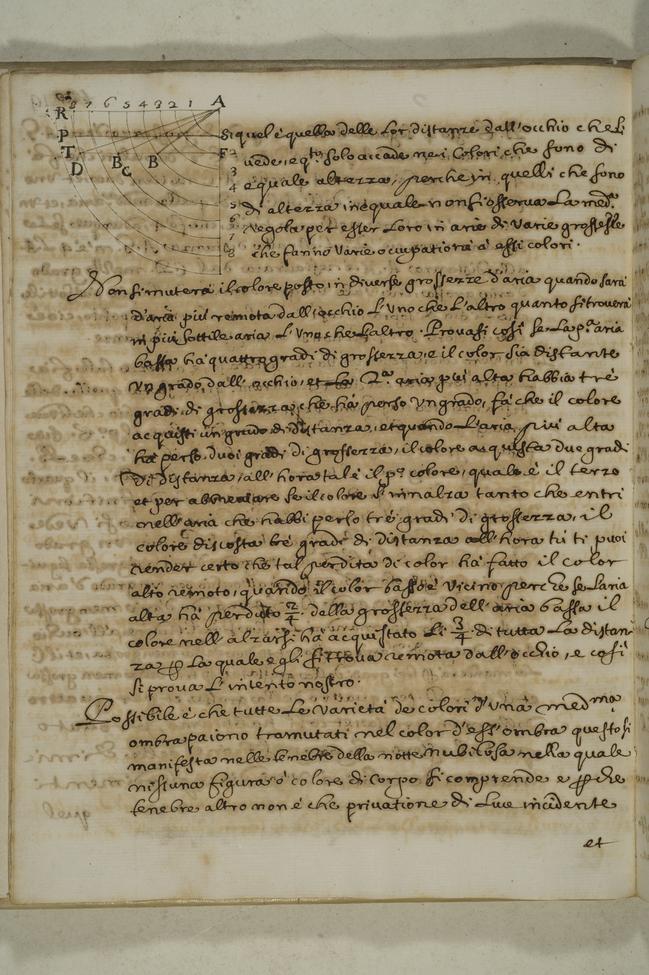 R 8 7 6 5 4 3 2 1 A
P
T
D B C B F
2
3
4
5
6
7
8
si quel è quella delle lor distanze dall'occhio che li
vede, e q.to solo accade nei colori che sono di
equale altezza, perche in quelli che sono
di altezza inequale non si osserva la med.a
regola per esser loro in arie di varie grossezze
che fanno varie occupationi à essi colori.
Non si muterà il colore posto in diverse grossezze d'aria quando sarà
d'aria più remota dall'occhio l'uno che l'altro quanto si troverà
in più sottile aria l'uno che l'altro. Provasi così se la p.a aria
bassa hà quattro gradi di grossezza, e il color sia distante
un grado dall'occhio, et la 2.a aria più alta habbia trè
gradi di grossezza, che hà perso un grado, fà che il colore
acquisti un grado di distanza, et quando l'aria più alta
hà perso duoi gradi di grossezza, il colore acquista due gradi
di distanza, all'hora tal è il p.o colore, quale è il terzo
et per abbreviare se il colore s'innalza tanto che entri
nell'aria che habbi perso trè gradi di grossezza, il
colore discosta trè gradi di distanza all'hora tu ti puoi
render certo che tal perdita di color hà fatto il color
alto remoto, quando il color basso è vicino perche se l'aria
alta hà perduto 2/4 della grossezza dell'aria bassa il
colore nell'alzarsi hà acquistato li 3/4 di tutta la distan
za p la quale egli si trova remota dall'occhio, e così
si prova l'intento nostro.
Possibile è che tutte le varietà de colori d'una med.ma
ombra paiono tramutati nel color d'ess'ombra questo si
manifesta nelle tenebre della notte nubilosa nella quale
nissuna figura ò colore di corpo si comprende e p che
tenebre altro non è che privatione di luce incidente
et